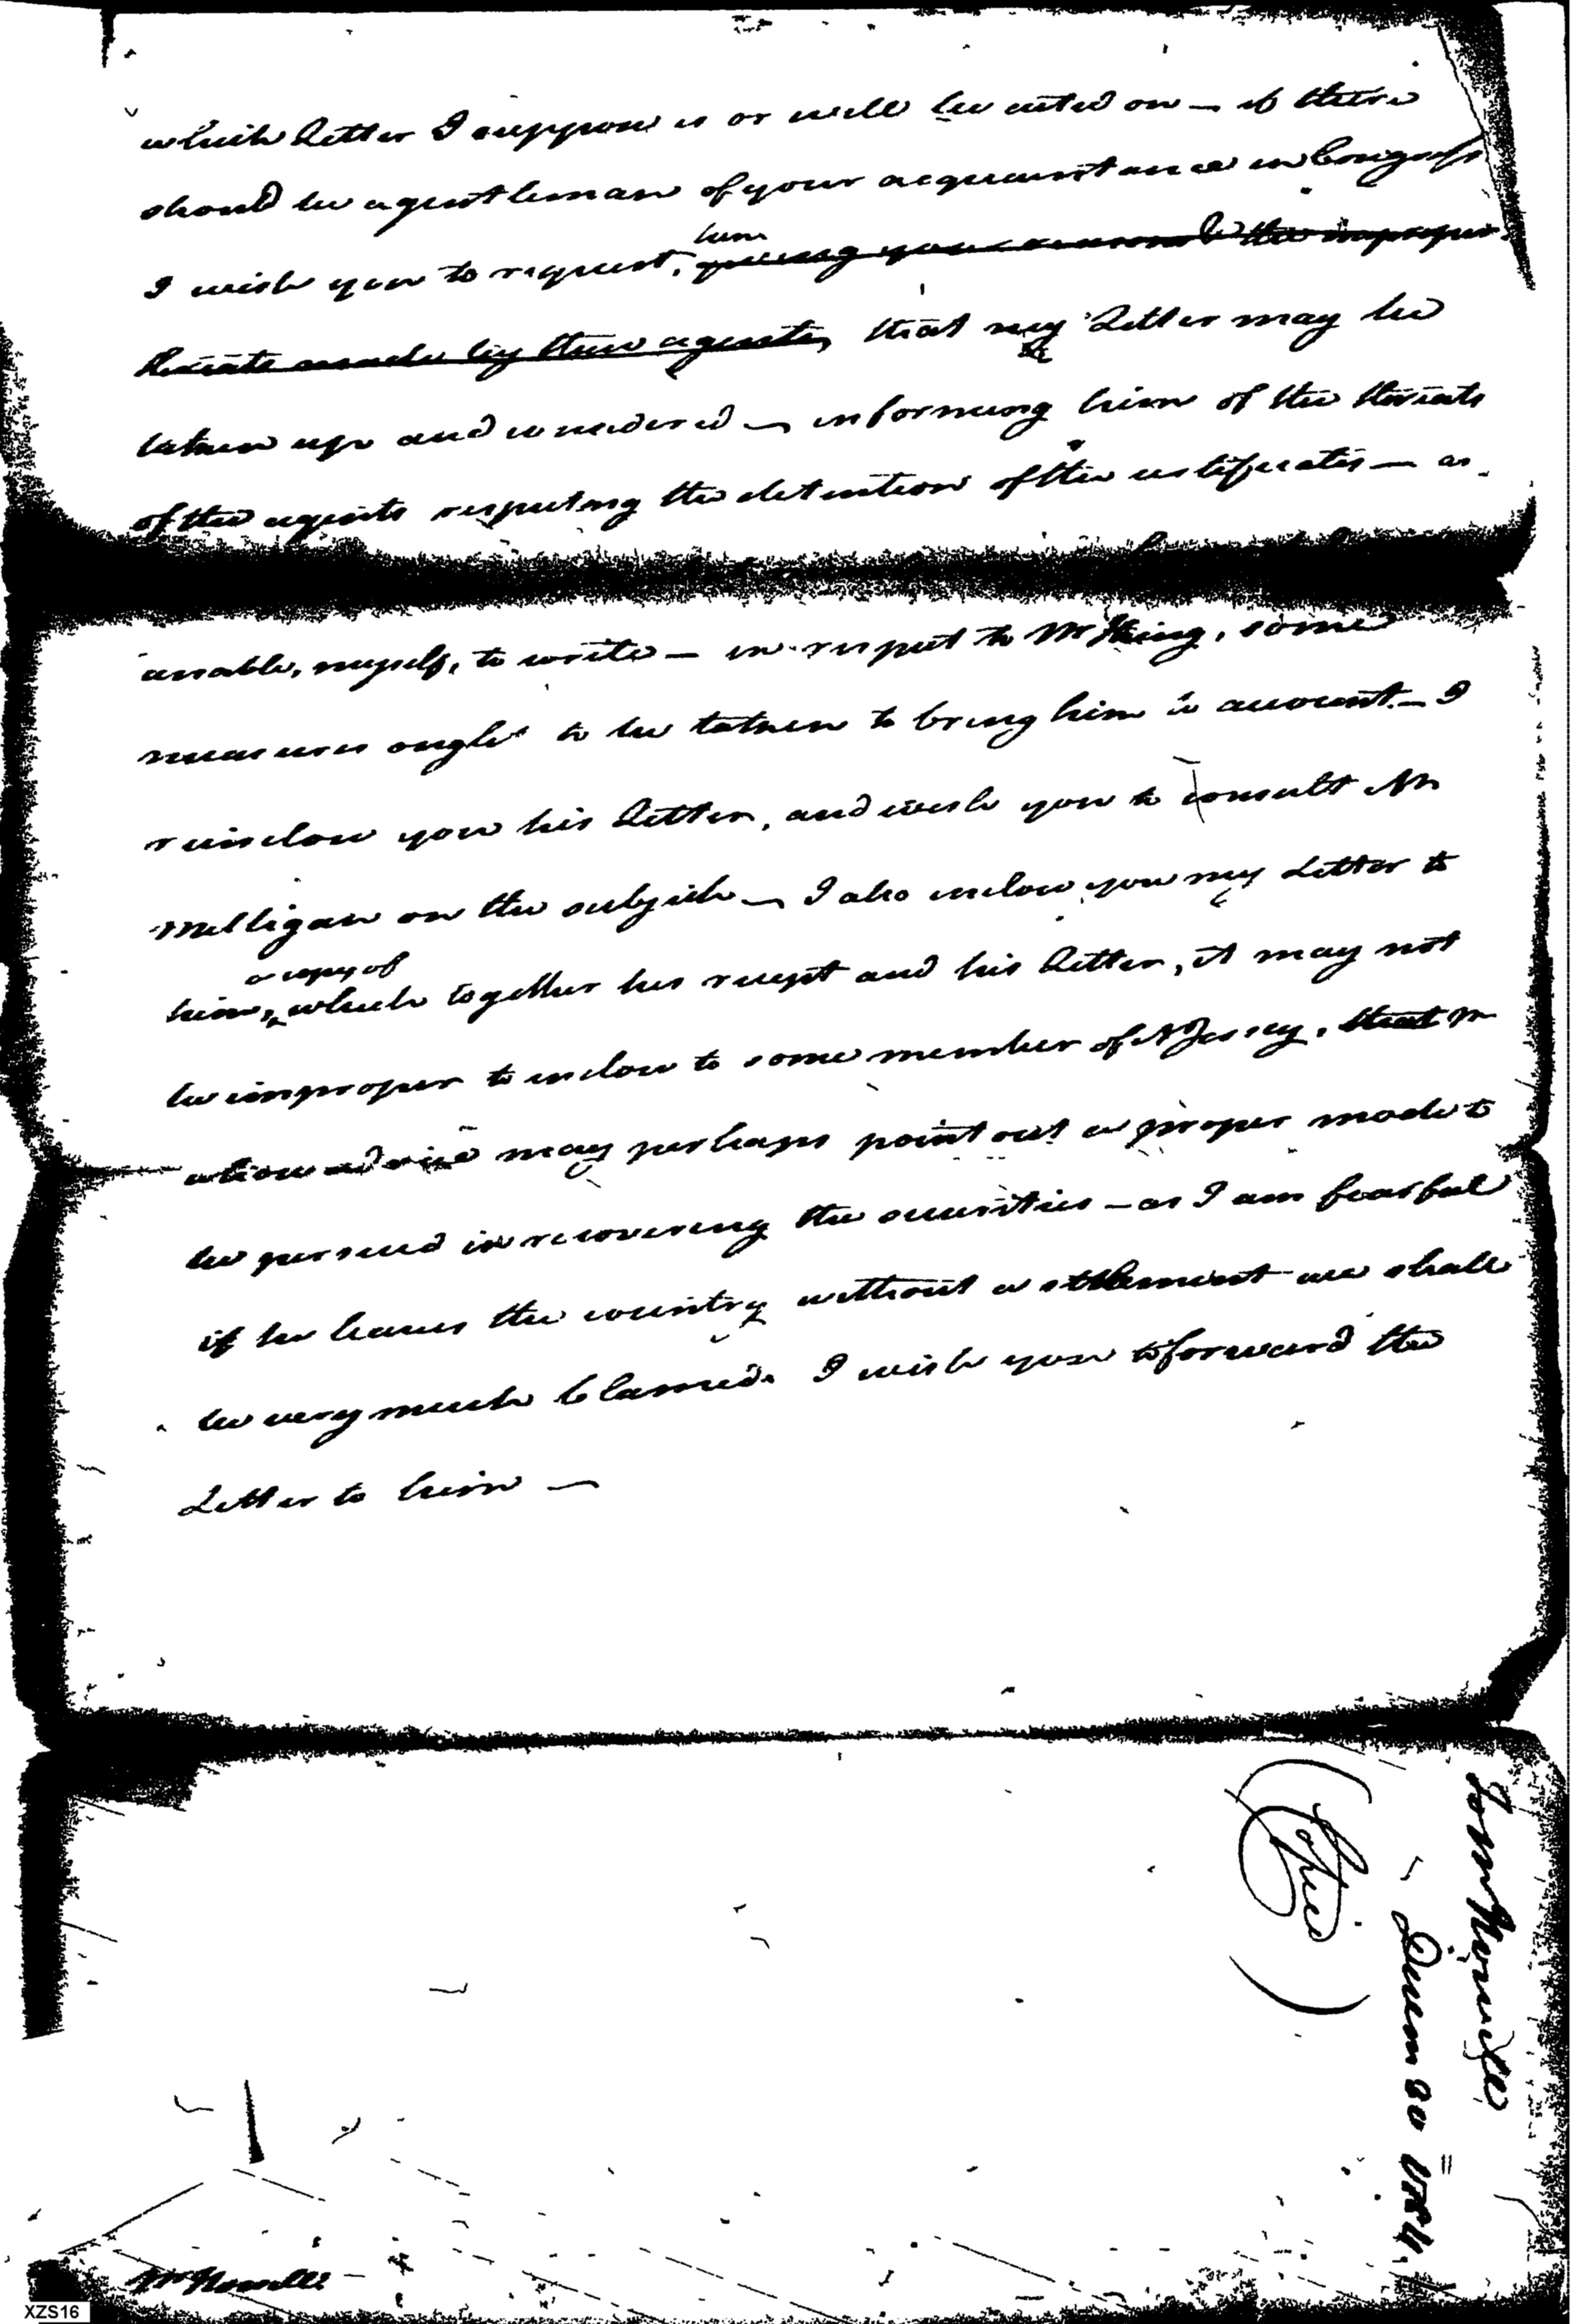 which Letter I suppose is or will be acted on — if there
should be a gentleman of your acquaintance in Congress
I wish you to request, him giving you the improper
threats made by these agents, that my Letter may be
taken up and considered — informing him of the threats
of the agents respecting the detention of the certificates — as
unable, myself, to write — in respect to Mr King, some
measures ought to be taken to bring him to account — I
reinclose you his Letter, and wish you to consult Mr
Milligan on the subject — I also inclose you my Letter to
a copy of
him, which together his receipt and his Letter, it may not
be improper to inclose to some member of N Jersey,
whose advice may perhaps point out a proper mode to
be pursued in recovering the securities — as I am fearful
if he leaves the country without a settlement we shall
be very much blamed. I wish you to forward the
Letter to him —
(Copie)
Decem 20 1784
Mr Howell
XZS16